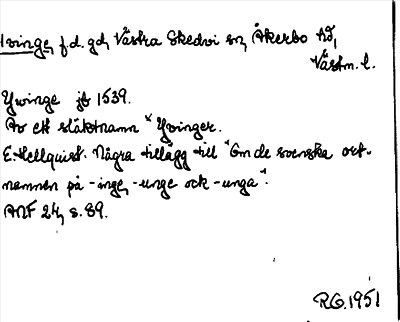 Yvinge, f.d. gd, Västra Skedvi sn, Åkerbo hd,
Västm. l.
Ywinge jb 1539.
Av ett släktnamn * Ywinger.
E. Hellquist. Några tillägg till "Om de svenska ort-
namnen på -inge, -unge ock -unga".
ANF 24, s. 89.
R.G. 1951